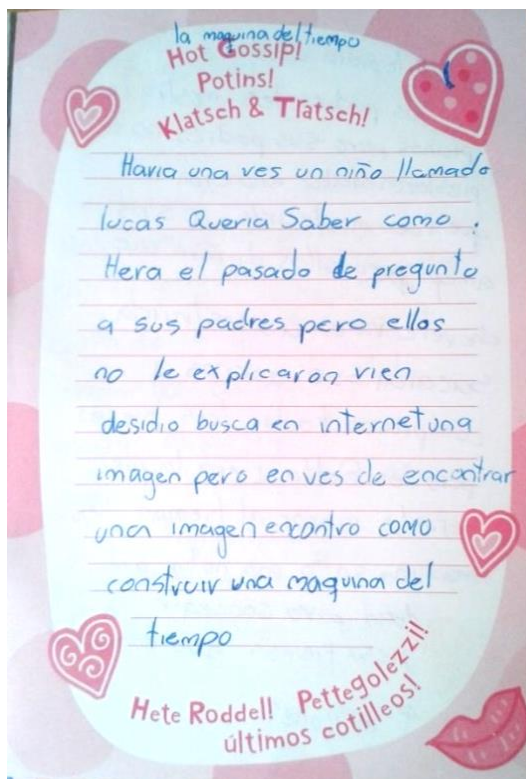 la maquina del tiempo
Hot Gossip!
Potins!
Klatsch & Tratsch!
Havia una ves un niño llamado
lucas Queria Saber como.
Hera el pasado le pregunto
a sus padres pero ellos
no le explicaron vien
desidio busca en internet una
imagen pero en ves de encontrar
una imagen encontro como
construir una maquina del
tiempo
Hete Roddel! Pettegolezzi!
últimos cotilleos!